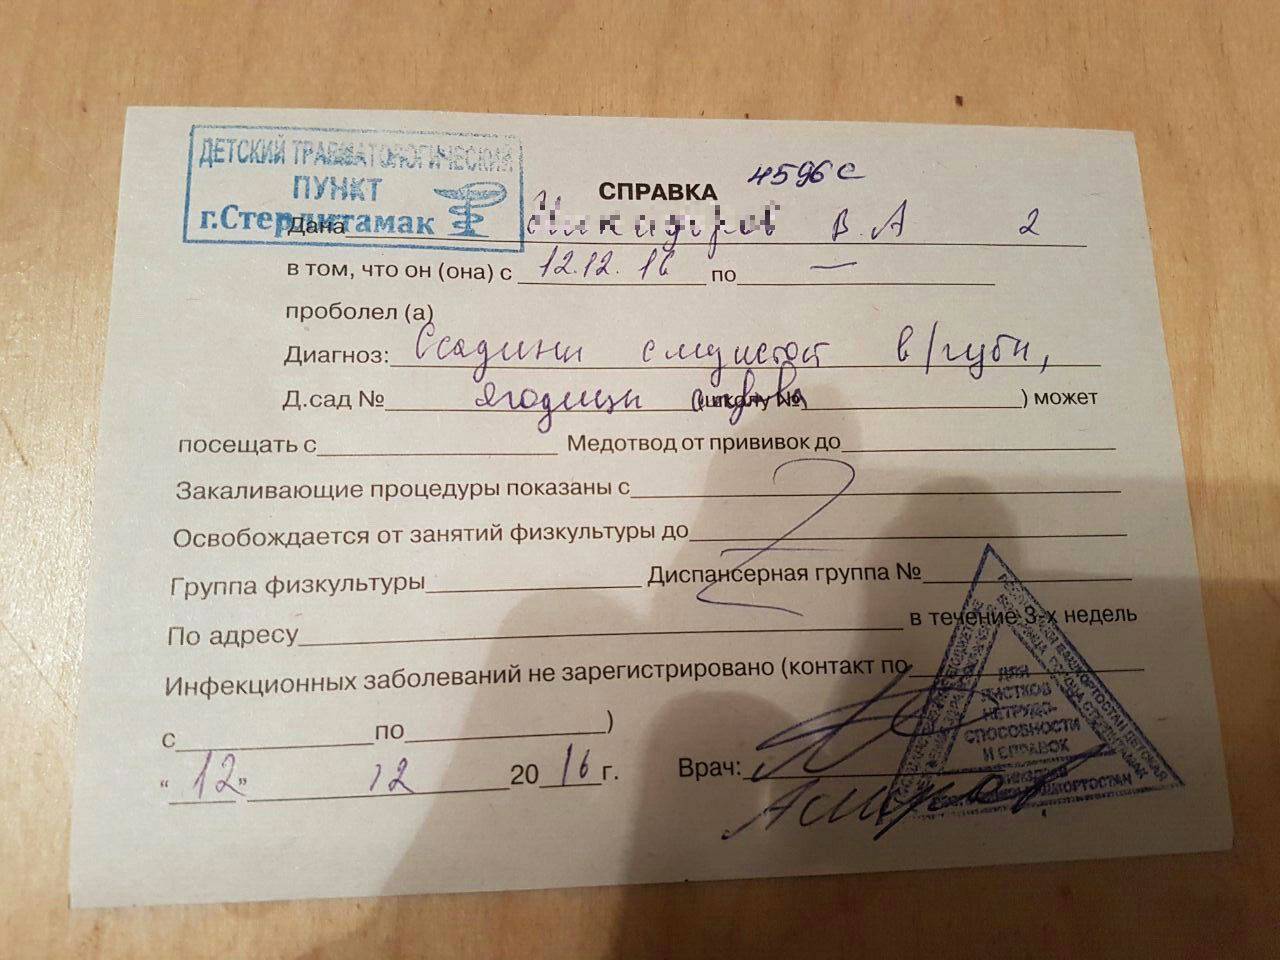 ДЕТСКИЙ ТРАВМАТОЛОГИЧЕСКИЙ
ПУНКТ
г.Стерлитамак
СПРАВКА 4596 с
Дана В.А 2
в том, что он (она) с 12.12.16 по —
проболел (а)
Диагноз: Ссадины слизистой в/губы,
Д.сад № ягодицы (школу № ) может
посещать с Медотвод от прививок до
Закаливающие процедуры показаны с
Освобождается от занятий физкультуры до
Группа физкультуры Диспансерная группа №
По адресу в течение 3-х недель
Инфекционных заболеваний не зарегистрировано (контакт по
с по )
"12" 12 2016 г. Врач:
ДЛЯ
ЛИСТКОВ
НЕТРУДО-
СПОСОБНОСТИ
И СПРАВОК